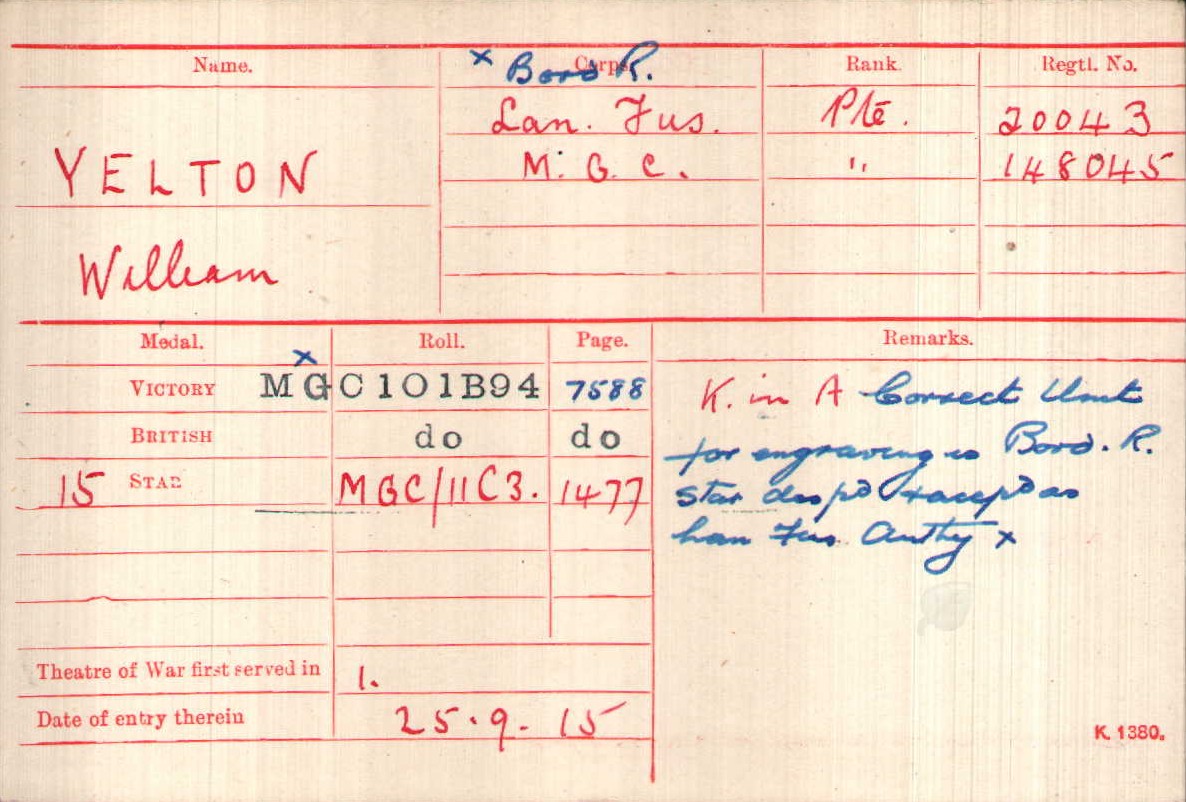 Name. Corps. Rank. Regtl. No.
x Bord R.
Lan. Fus. Pte. 20043
YELTON M. G. C. " 148045
William
Medal. Roll. Page. Remarks.
x
VICTORY MGC101B94 7588 K. in A Correct Unit
BRITISH do do for engraving is Bord. R.
15 STAR MGC/11C3. 1477 Star desp'd + accep'd as
Lan Fus Authy x
Theatre of War first served in 1.
Date of entry therein 25.9.15
K. 1380.